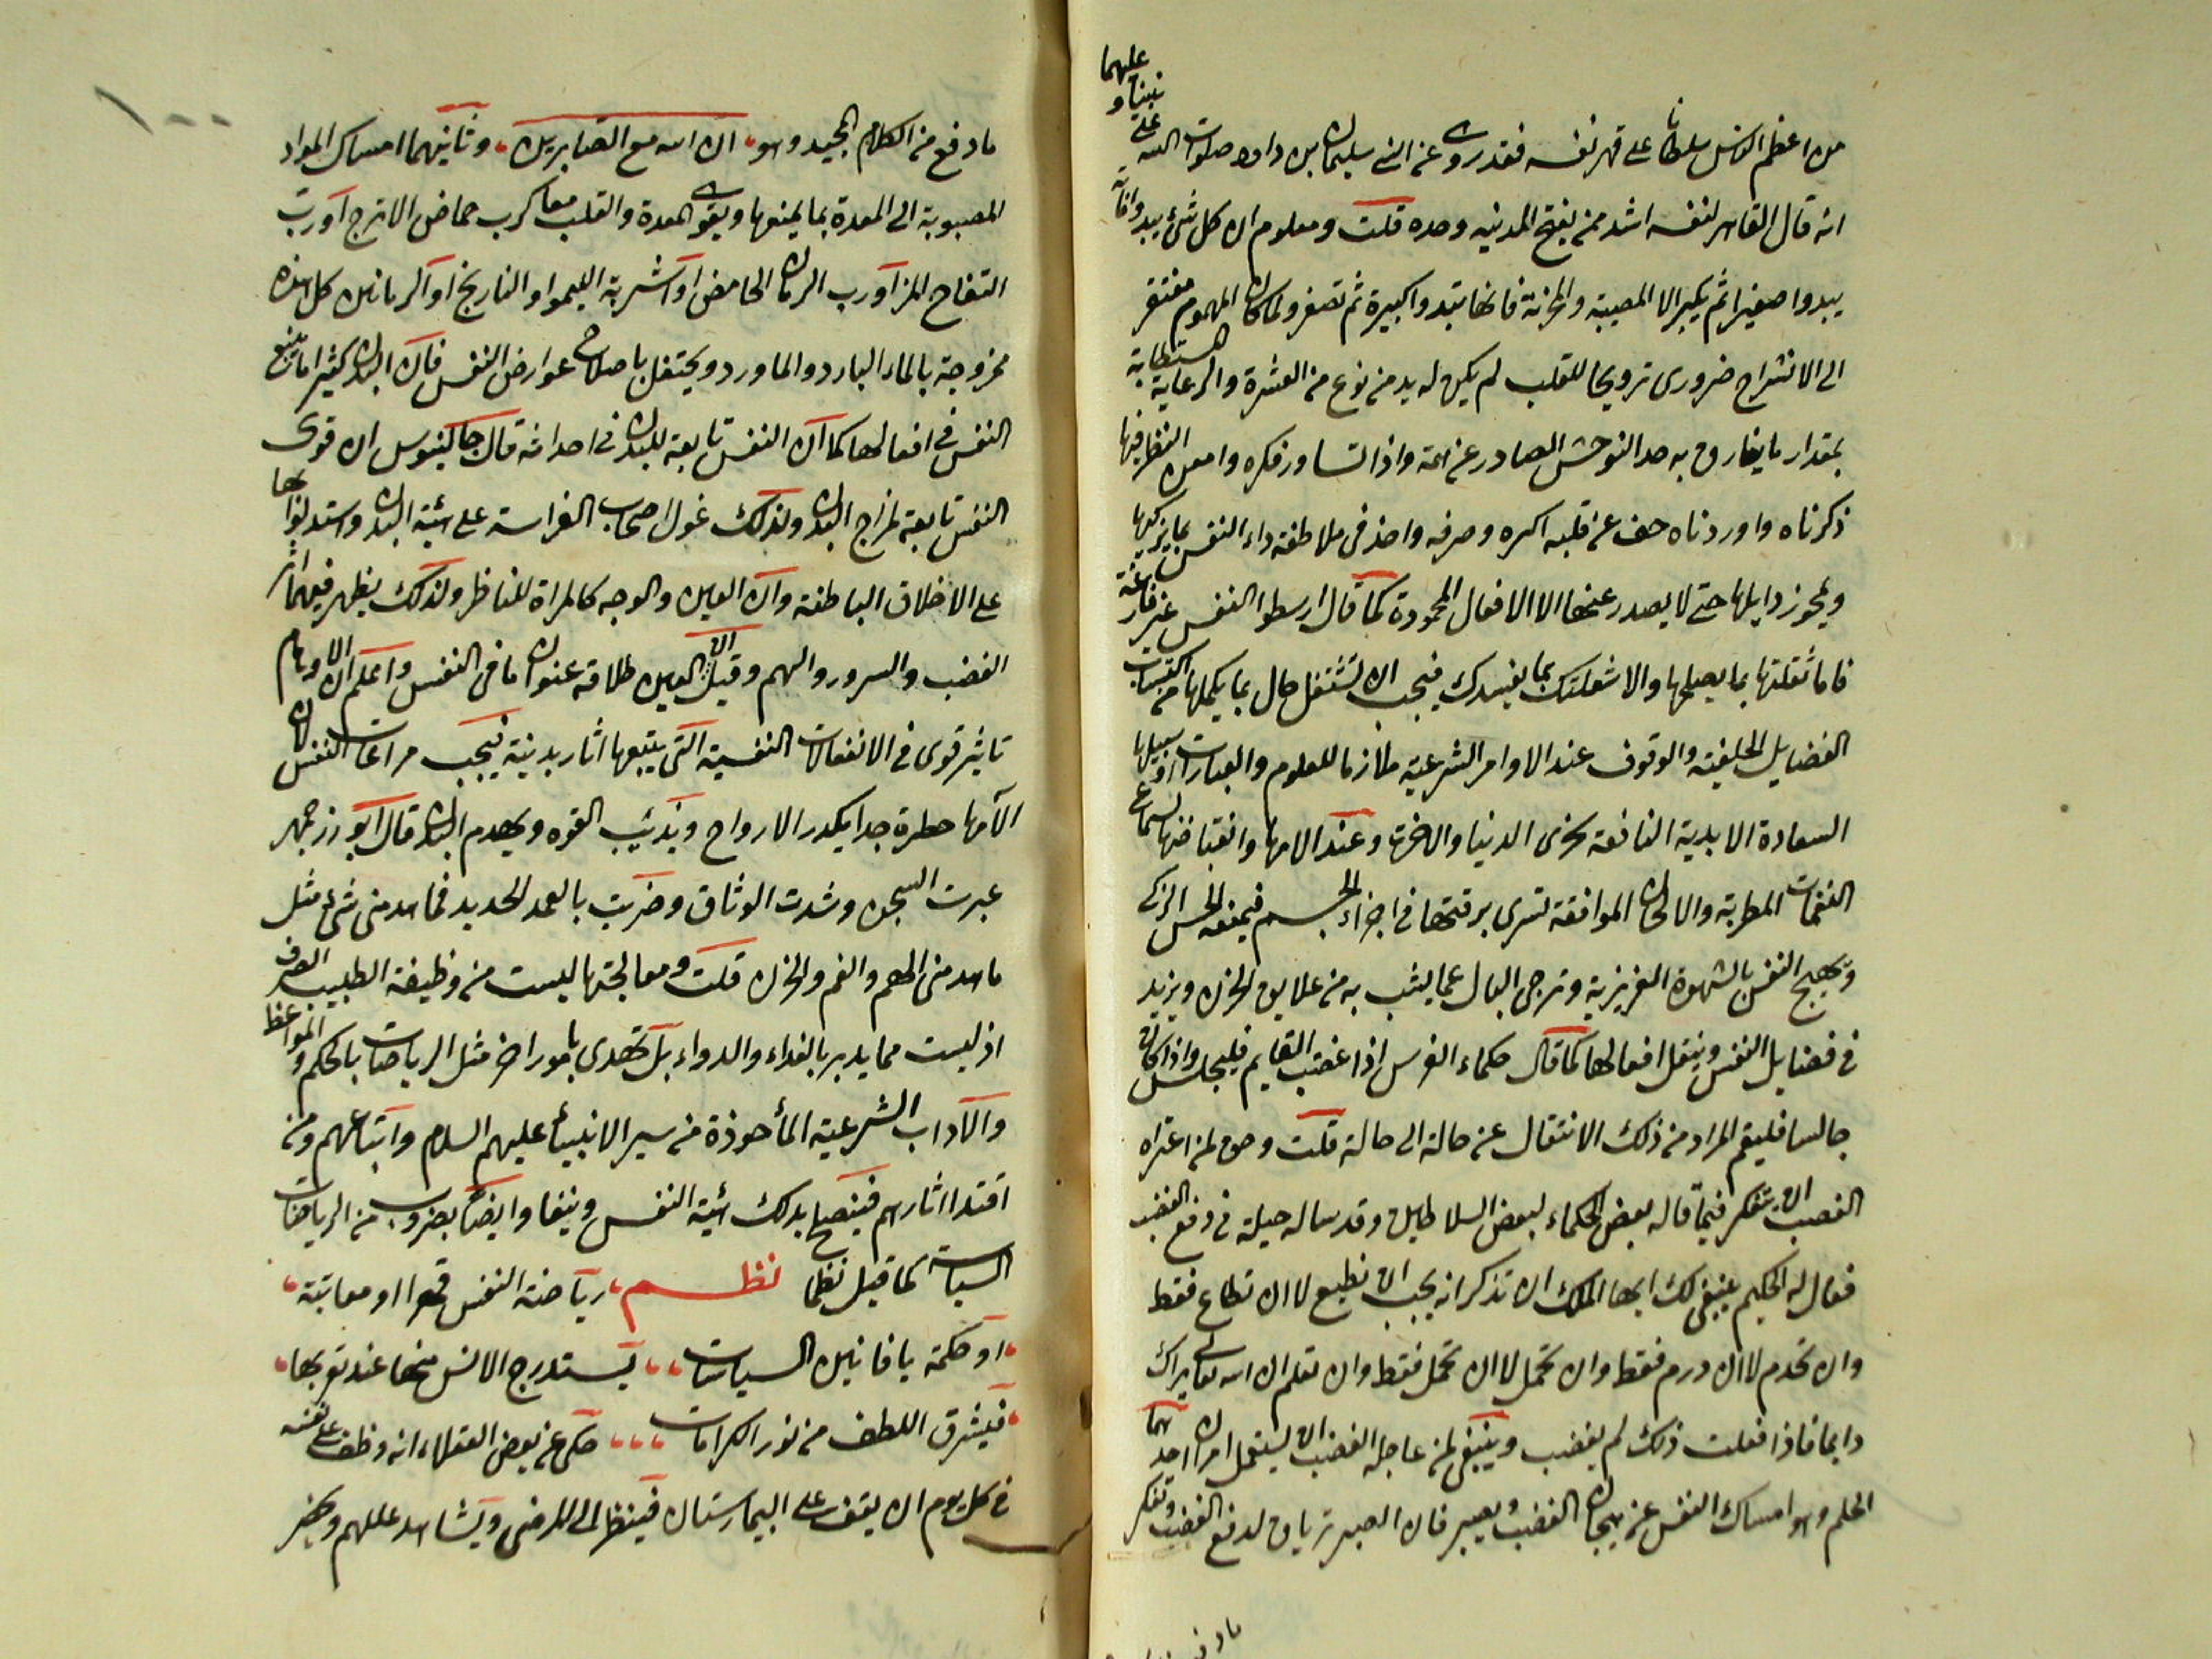 من اعظم الناس سلطانا على قهر نفسه فقد روى عن النبى سليمان بن داود صلوات الله على نبينا وعليهما
انه قال القاهر لنفسه اشد ممن يفتح المدينه وحده قلت ومعلوم ان كل شئ يبدوا فانه
يبدوا صغيرا ثم يكبر الا المصيبة والحزن فانها تبدوا كبيرة ثم تصغر ولما كان المهموم مفتقر
الى الانشراح ضرورى ترويحا للقلب لم يكن له بد من نوع من العشرة والرعاية
بمقدار ما يفارق به حد التوحش الصادر عن همه واذا تساور فكره وامعن النظر فيما
ذكرناه واوردناه خف عن قلبه اكثره وصرفه واخذ فى ملاطفة داء النفس بما يزكيها
ويحوز ذايلها حتى لا يصدر عنها الا الافعال المحمودة كما قال ارسطو النفس غير فارغة
فاما شغلتها بما يصلحها والا شغلتك بما يفسدك فيجب ان تشتغل حال بما يكملها من اكتساب
الفضايل الخليقة والوقوف عند الاوامر الشرعية ملازما للعلوم والعبارات
السعادة الابدية النافعة بخرى الدنيا والاخرة وعند الامها وانقباضها لسماع
النغمات المطربة والالحان الموافقة لتسرى برقتها فى اجزاء الجسم فيمنعه الحس الزكى
وتهيج النفس بالشهوة الغريزية وترجى البال عما يشب به من علايق الحزن ويزيد
فى فضايل النفس وينقل افعالها كما قال حكماء الفرس اذا غضب القايم فليجلس واذا كان
جالسا فليقم المراد من ذلك الانتقال عن حالة الى حالة قلت وحق لمن اعتراه
الغضب ان يتفكر فيما قاله بعض الحكماء لبعض السلاطين وقد ساله حيلة فى دفع الغضب
فقال له الحكيم ينبغى لك ايها الملك ان تذكر انه يجب ان تطيع لا ان تطاع فقط
وان تخدم لا ان تخدم فقط وان تحمل لا ان تحمل فقط وان تعلم ان الله تعالى يراك
دايما فاذا فعلت ذلك لم يغضب وينبغى لمن عاجله الغضب ان يستعمل امران احدهما
الحلم وهو امساك النفس عن هيجان الغضب ويصبر فان الصبر ترياق لدفع الغضب ويتفكر
ما دفع من الكلام المجيد وهو ان الله مع الصابرين وثانيهما امساك المواد
المصبوبة الى المعدة بما يمنعها ويقوى المعدة والقلب معا كرب حماض الاترج او رب
التفاح المز او رب الرمان الحامض او اشربة الليموا والنارنج او الرمانين كل هذه
ممزوجة بالماء البارد والماورد ويحتفل باصلاح عوارض النفس فان البدن كثيرا ما يتبع
النفس فى افعالها كما ان النفس تابعة للبدن فى احداثه قال جالينوس ان قوى
النفس تابعة لمزاج البدن ولذلك عول اصحاب الفراسة على هيئة البدن واستدلوا بها
على الاخلاق الباطنة وان العين والوجه كالمراة للناظر ولذلك يظهر فيهما اثار
الغضب والسرور والهم وقيل ان العين طلاقة عنوان ما فى النفس واعلم ان الاوهام
تاثير قوى فى الانفعالات النفسية التى يتبعها اثار بدنية فيجب مراعات النفس لان
الآمها خطرة جدا يكدر الارواح ويذيب القوه ويهدم البدن قال ابوزرجمهر
عبرت السجن وشدت الوثاق وضربت بالعمد الحديد فما هدمنى شئ مثل
ما هدمنى الهم والغم والحزن قلت ومعالجتها ليست من وظيفة الطبيب الصرف
اذ ليست مما يدبر بالغذاء والدواء بل تهدى بامور اخر مثل الرياضات بالحكم والمواعظ
والآداب الشرعية المأخوذة من سير الانبياء عليهم السلام واتباعهم ومن
اقتدا اثارهم فينصح بدلك هيئة النفس وينقاوا ايضا بضروب من الرياضات
السياسات كما قيل نظما نظم رياضة النفس قهرا او معاتبة
او حكمة بافانين السياسات يستدرج الانس منها عند تقربها
فيشرق اللطف من نور الكرامات حكى عن بعض العقلاء انه وظف على نفسه
فى كل يوم ان يقف على البيمارستان فينظر الى المرضى ويشاهد عللهم ويحضر